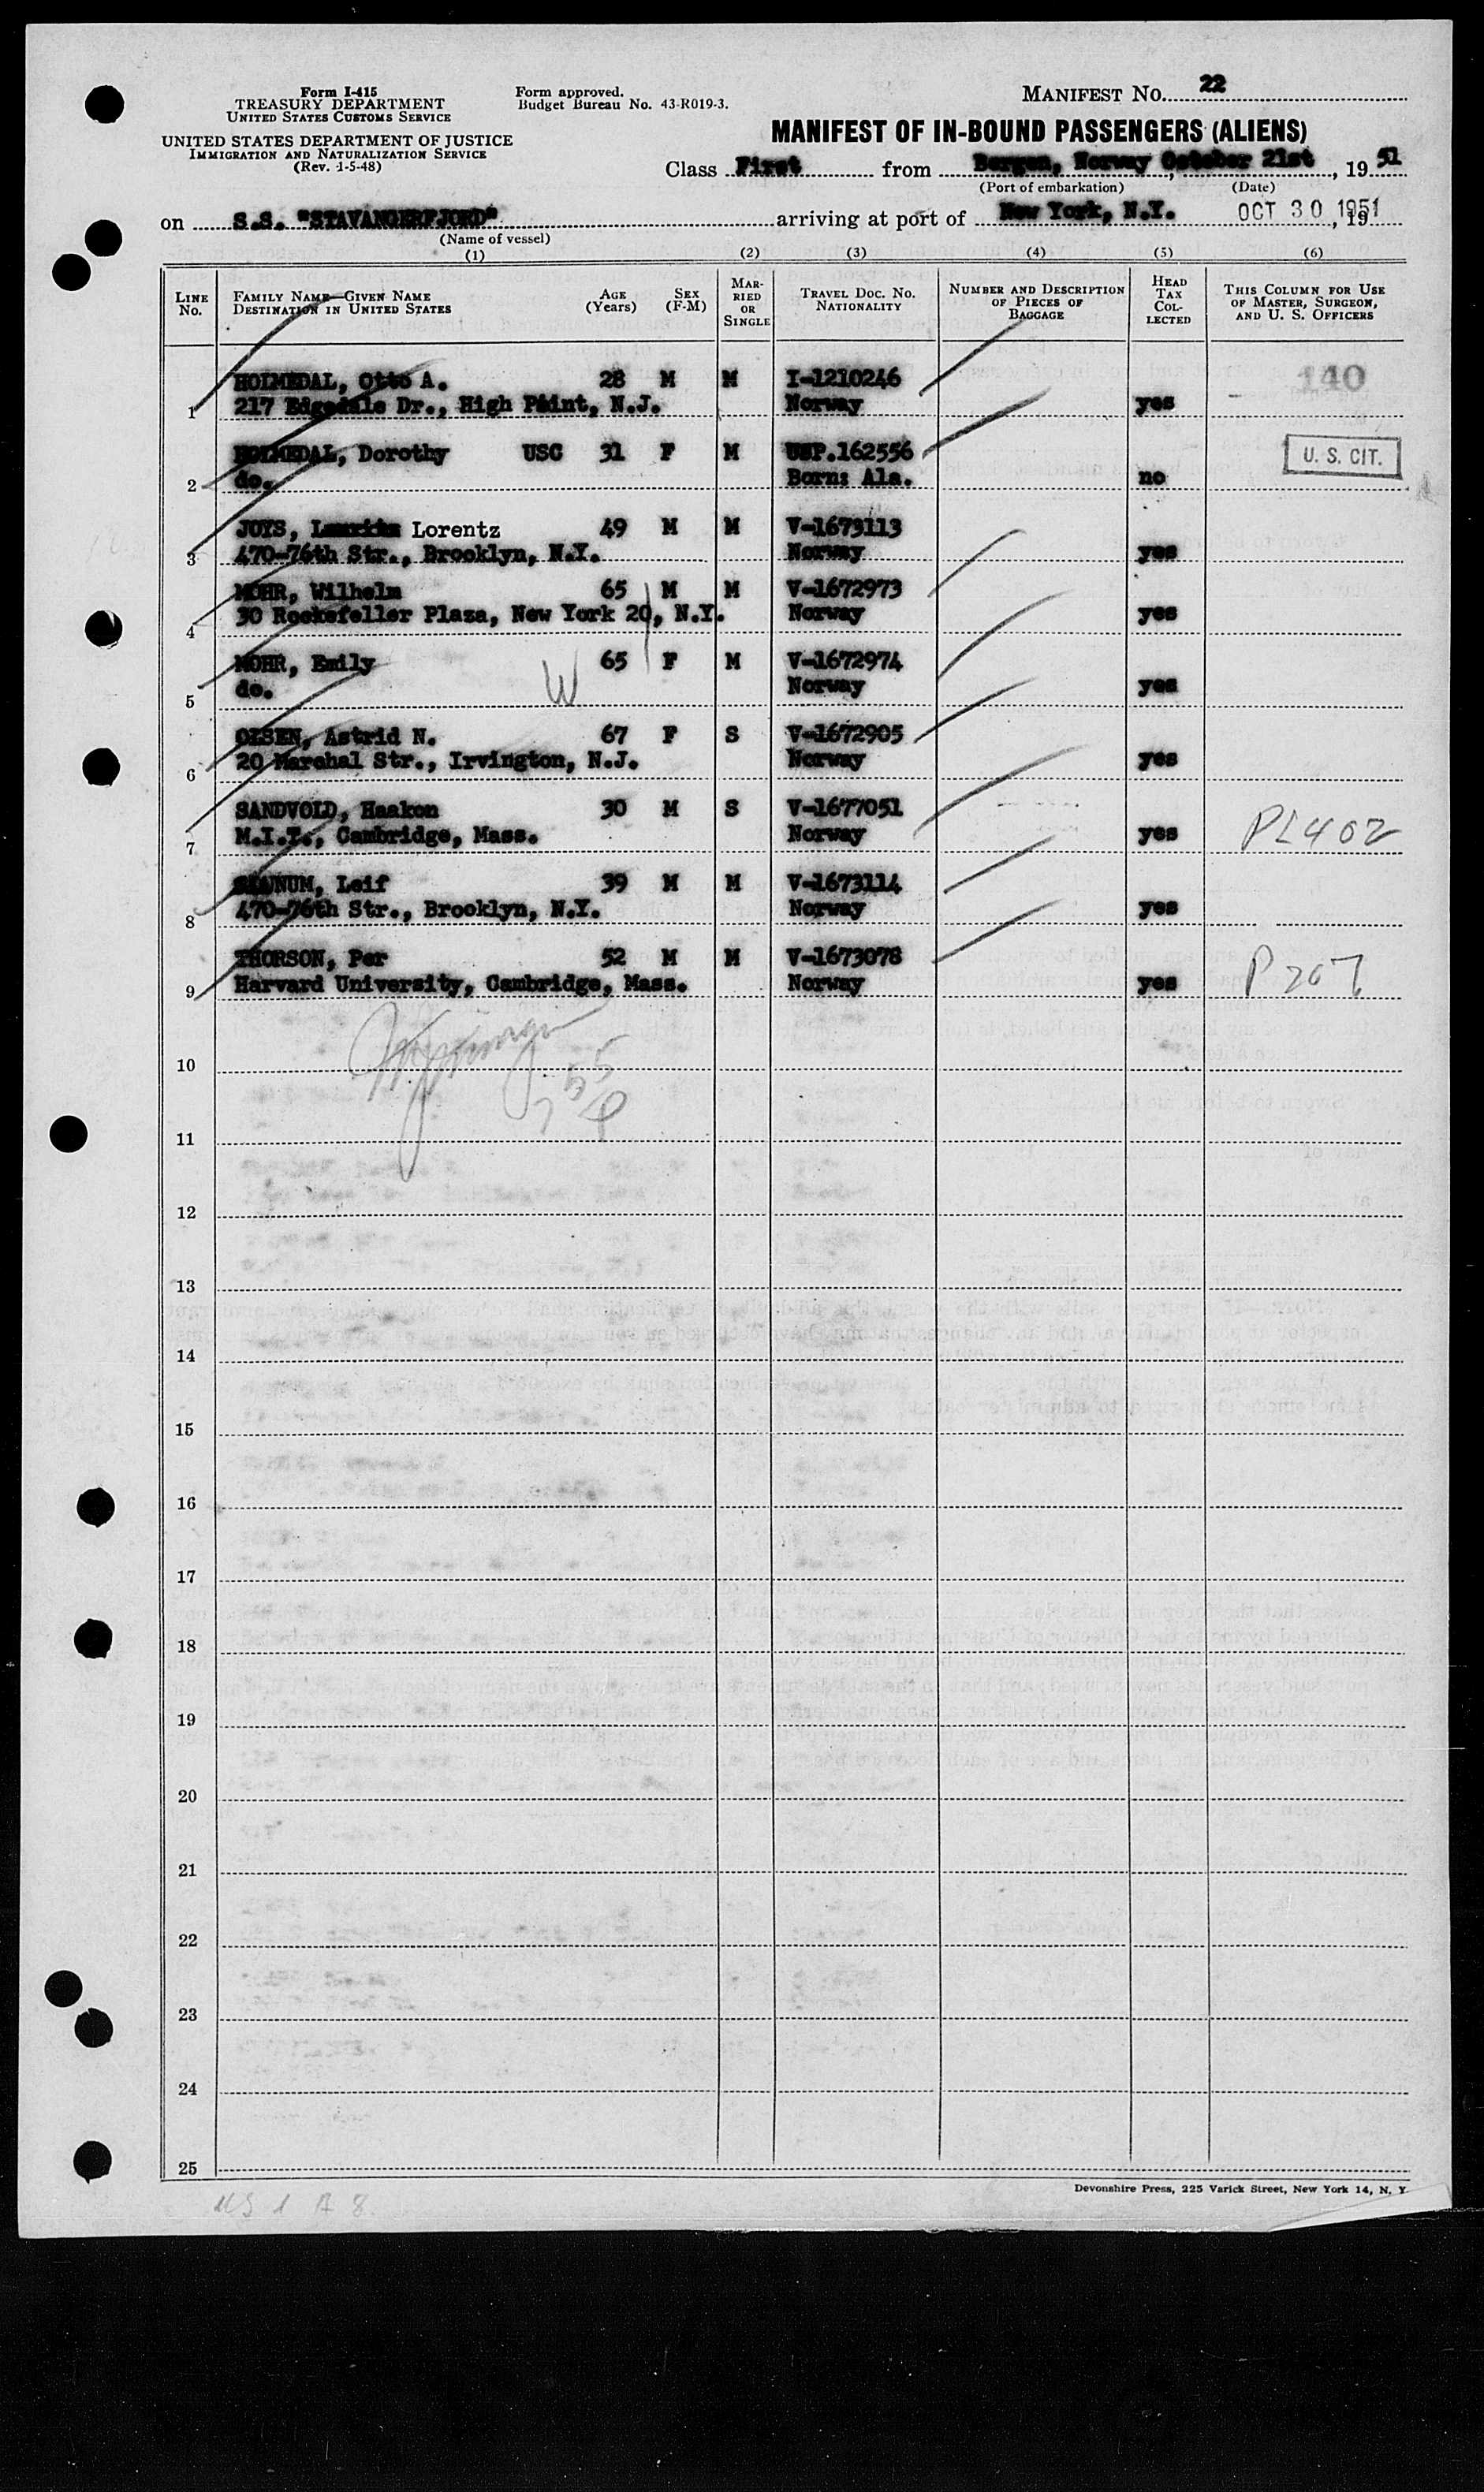 Form I-415
TREASURY DEPARTMENT
UNITED STATES CUSTOMS SERVICE
UNITED STATES DEPARTMENT OF JUSTICE
IMMIGRATION AND NATURALIZATION SERVICE
(Rev. 1-5-48)
Form approved.
Budget Bureau No. 43-R019-3.
MANIFEST NO. 22
MANIFEST OF IN-BOUND PASSENGERS (ALIENS)
Class First from Bergen, Norway, October 21st, 19 51
(Port of embarkation) (Date)
on S.S. "STAVANGERFJORD" arriving at port of New York, N.Y. OCT 30 1951, 19
(Name of vessel)
(1) (2) (3) (4) (5) (6)
LINE NO. FAMILY NAME—GIVEN NAME DESTINATION IN UNITED STATES AGE (Years) SEX (F-M) MARRIED OR SINGLE TRAVEL DOC. NO. NATIONALITY NUMBER AND DESCRIPTION OF PIECES OF BAGGAGE HEAD TAX COLLECTED THIS COLUMN FOR USE OF MASTER, SURGEON, AND U. S. OFFICERS
HOLMEDAL, Otto A. 28 M M I-1210246 140
1 217 Edgedale Dr., High Point, N.J. Norway yes
HOLMEDAL, Dorothy USC 31 F M USP.162556 U. S. CIT.
2 do. Born: Ala. no
JOYS, Lorentz 49 M M V-1673113
3 470-76th Str., Brooklyn, N.Y. Norway yes
MOHR, Wilhelm 65 M M V-1672973
4 30 Rockefeller Plaza, New York 20, N.Y. Norway yes
MOHR, Emily 65 F M V-1672974
5 do. W Norway yes
OLSEN, Astrid N. 67 F S V-1672905
6 20 Marshal Str., Irvington, N.J. Norway yes
SANDVOLD, Haakon 30 M S V-1677051
7 M.I.T., Cambridge, Mass. Norway yes PL402
Leif 39 M M V-1673114
8 470-76th Str., Brooklyn, N.Y. Norway yes
THORSON, Per 52 M M V-1673078
9 Harvard University, Cambridge, Mass. Norway yes P207
10
11
12
13
14
15
16
17
18
19
20
21
22
23
24
25
Devonshire Press, 225 Varick Street, New York 14, N. Y.